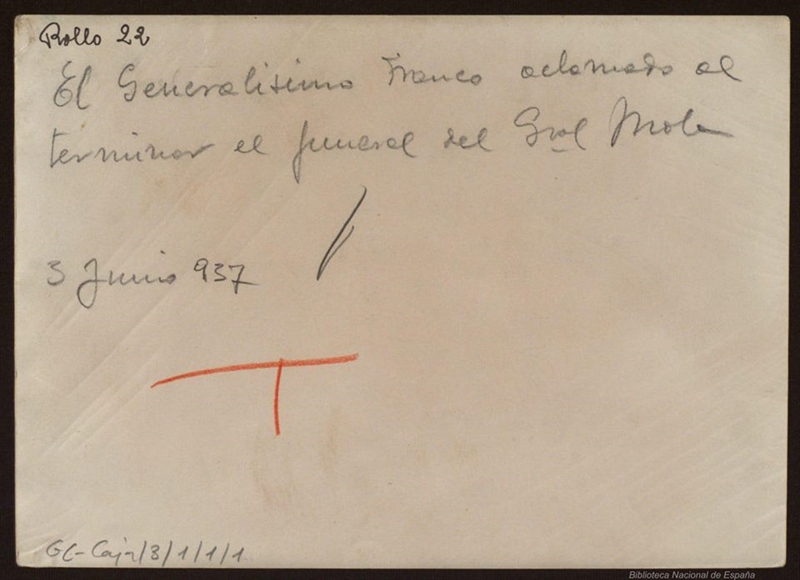 Rollo 22
El Generalisimo Franco aclamado al
terminar el funeral del Gral Mola
3 Junio 937
T
GC-Caja/3/1/1/1
Biblioteca Nacional de España